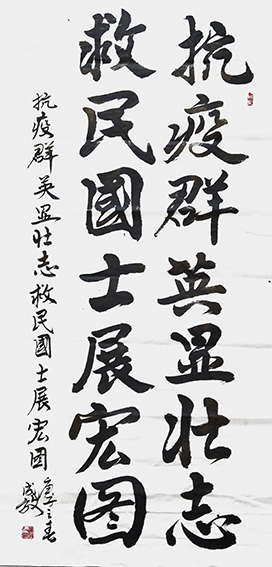 抗疫群英显壮志
救民國士展宏图
抗疫群英显壮志救民國士展宏图
庚子春